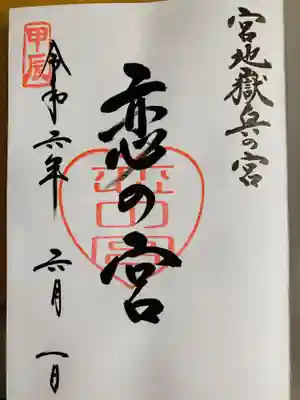 宮地嶽の宮
恋の宮
恋の宮
甲辰
令和六年 六月 一日